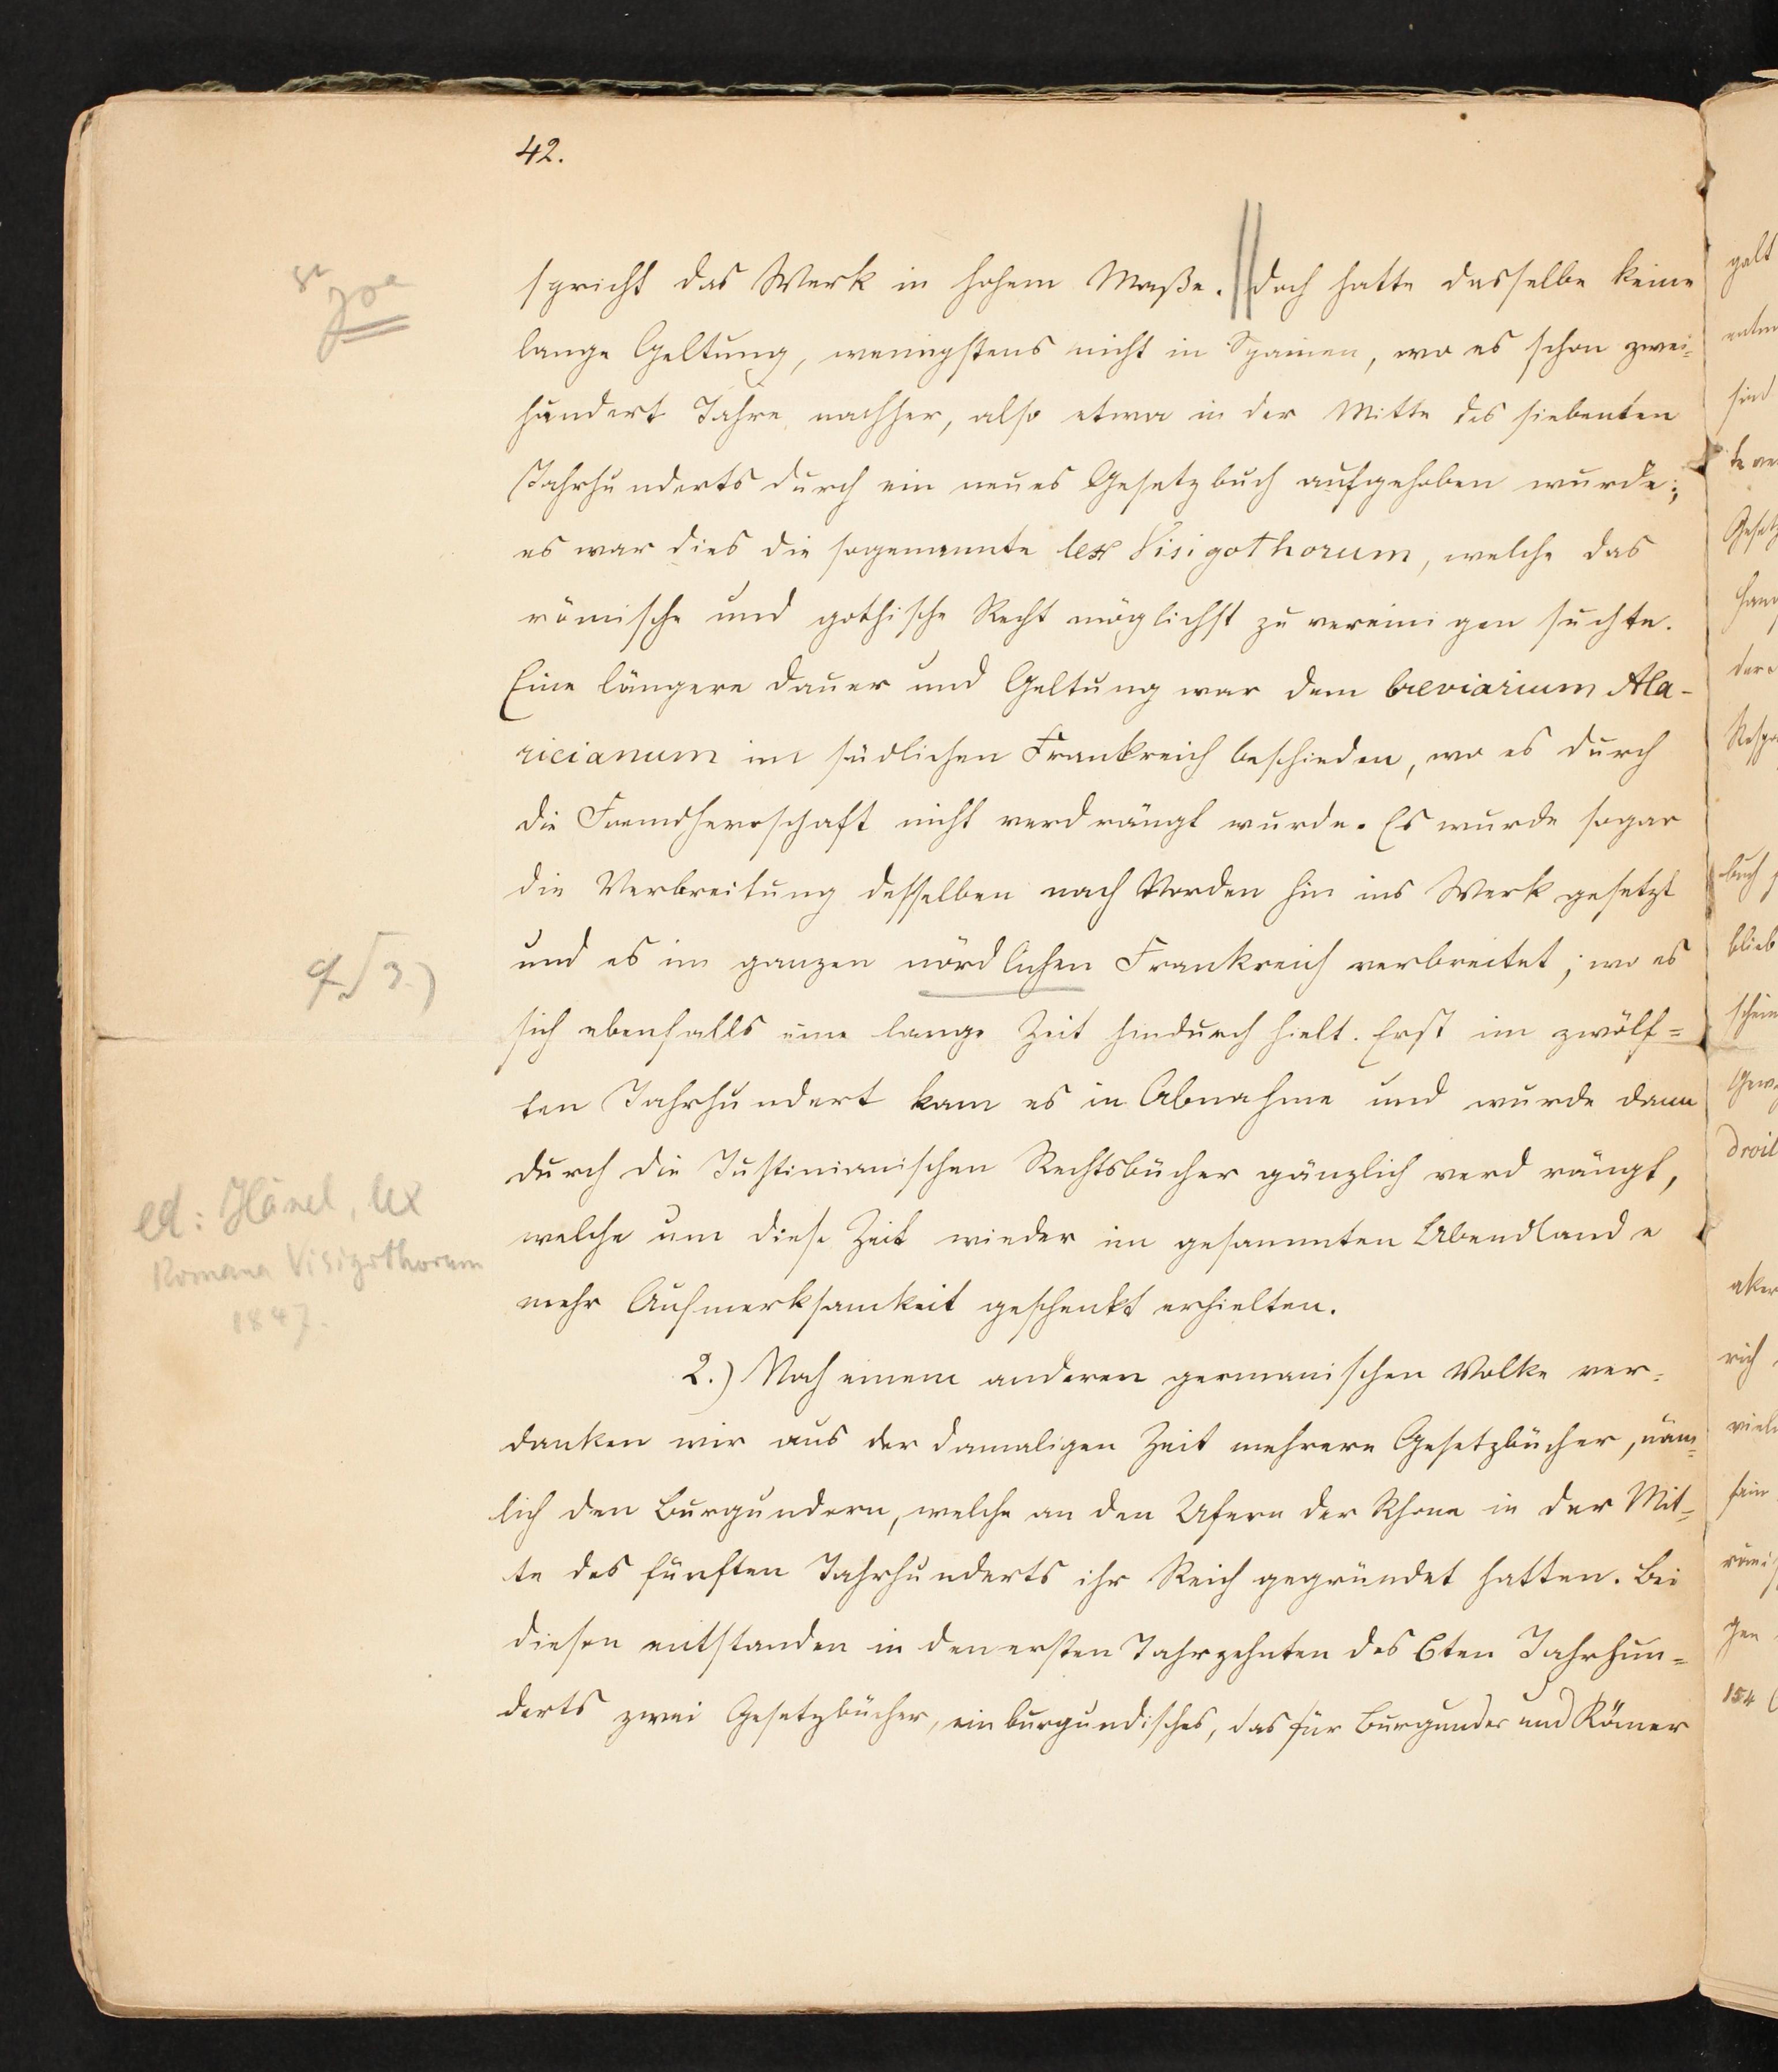 42.
spricht das Werk in hohem Maße. || doch hatte dasselbe keine
lange Geltung, wenigstens nicht in Spanien, wo es schon zwei-
hundert Jahre nachher, also etwa in der Mitte des siebenten
Jahrhunderts durch ein neues Gesetzbuch aufgehoben wurde;
es war dies die sogenannte lex Visigothorum, welche das
römische und gothische Recht möglichst zu vereinigen suchte.
Eine längere Dauer und Geltung war dem breviarium Ala-
ricianum im südlichen Frankreich beschieden, wo es durch
die Fremdherrschaft nicht verdrängt wurde. Es wurde sogar
die Verbreitung desselben nach Norden hin ins Werk gesetzt
und es im ganzen nördlichen Frankreich verbreitet; wo es
sich ebenfalls eine lange Zeit hindurch hielt. Erst im zwölf=
ten Jahrhundert kam es in Abnahme und wurde dann
durch die Justinianischen Rechtsbücher gänzlich verdrängt,
welche um diese Zeit wieder im gesammten Abendlande
mehr Aufmerksamkeit geschenkt erhielten.
2.) Noch einem anderen germanischen Volke ver=
danken wir aus der damaligen Zeit mehrere Gesetzbücher, näm=
lich den Burgundern, welche an den Ufern der Rhone in der Mit=
te des fünften Jahrhunderts ihr Reich gegründet hatten. Bei
diesen entstanden in den ersten Jahrzehnten des 6ten Jahrhun=
derts zwei Gesetzbücher, ein burgundisches, das für Burgunder und Römer
ed: Hänel, lex
Romana Visigothorum
1847.